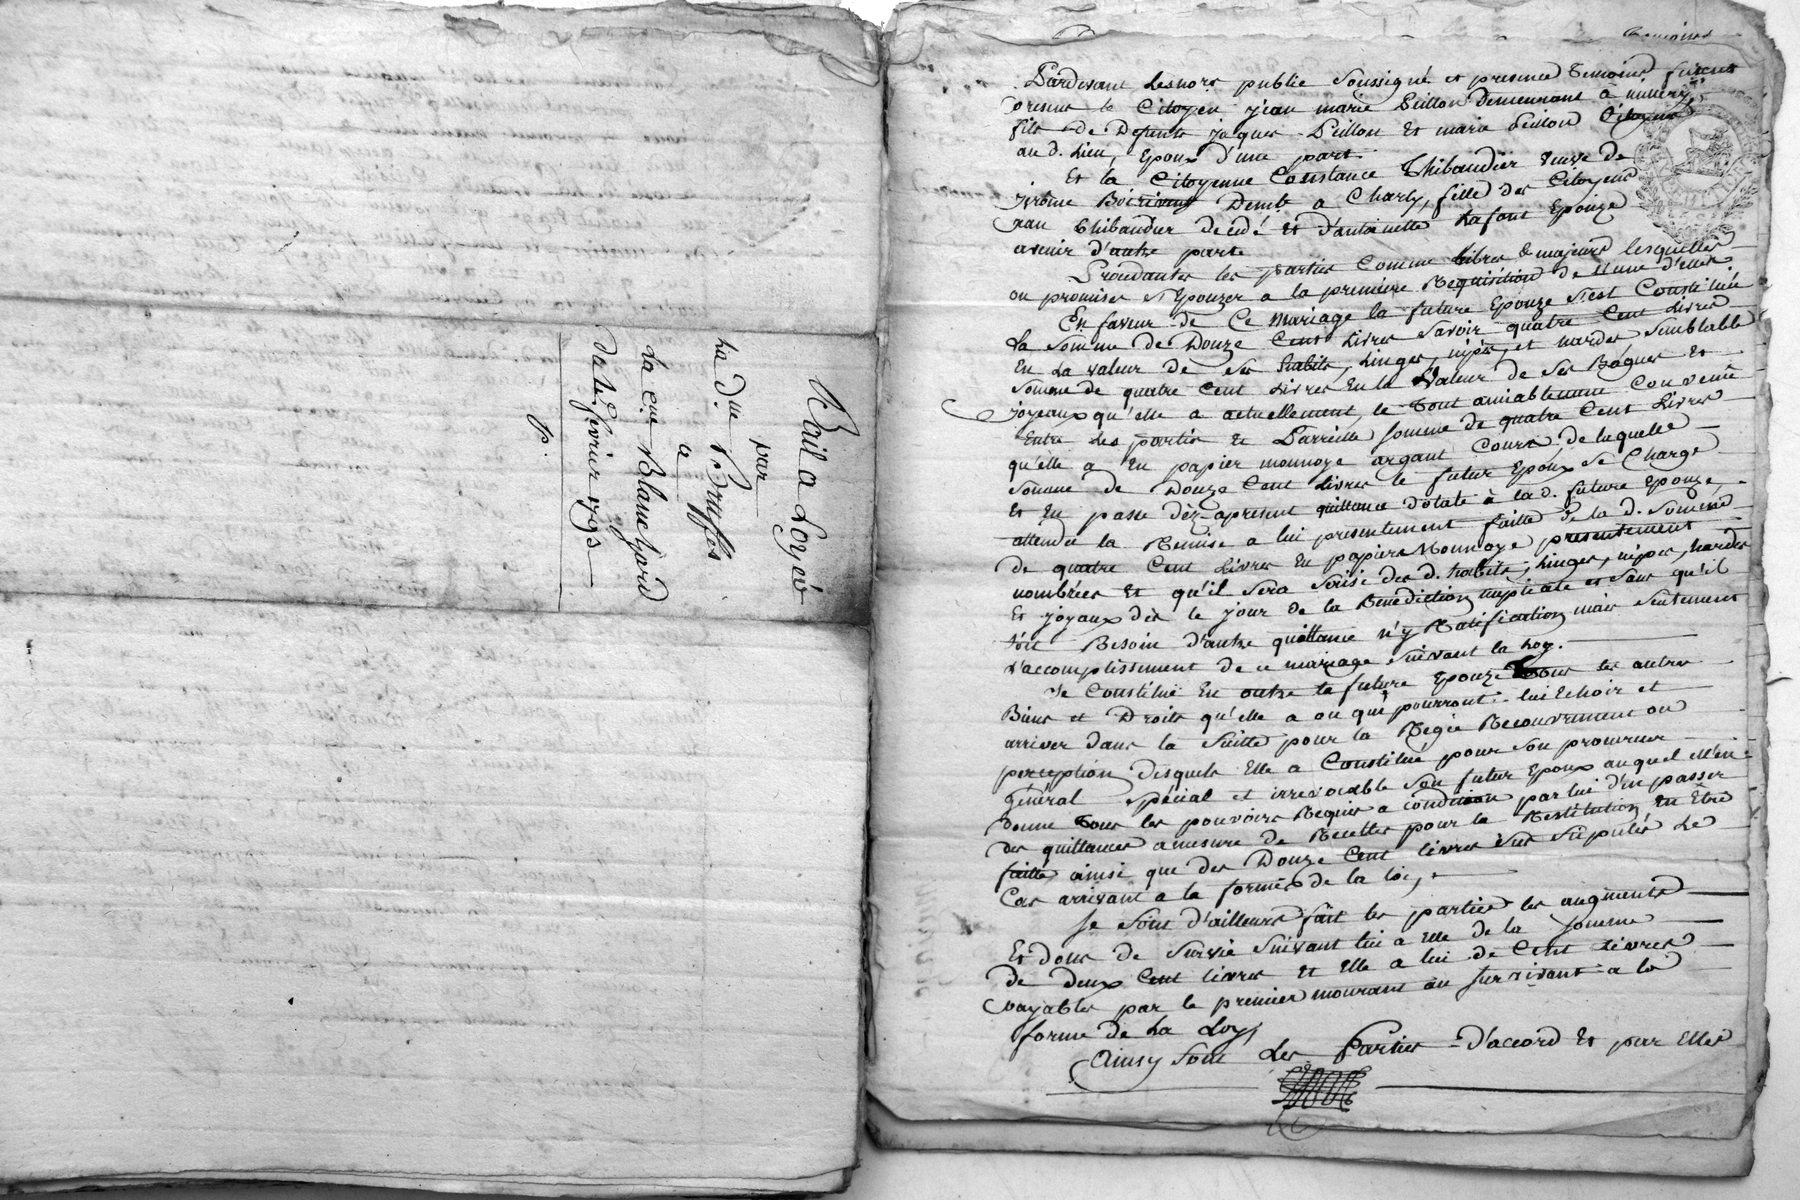 Bail a Loyer
par
La Dne Ve Bruffes
a
La Cne Blanchard
du 1er fevrier 1793
p.
temoins
Pardevant Lesnors public soussigné et presence temoins furent
presens le Citoyen jean marie Pillon Demeurant à millery,
fils de Defunts jaques Pillon et marie Pillon Citoyens
au d. Lieu, Epoux d'une part.
Et la Citoyenne Constance Thibaudier veuve de
jerôme Boirivent Demte a Charly, fille des Citoyens
jean Thibaudier decédé et d'antoinette Lafont Epouze
avenir d'autre part
Procedantes les parties comme libres & majeurs lesquelles
on promises s'Epouzer a la premiere Requisition de l'une d'elles
En faveur de Ce Mariage la future Epouze s'est Constitué
La Somme de Douze Cent Livres savoir quatre Cent Livres
En La valeur de ses habits, Linges, nipes, et hardes semblable
Somme de quatre Cent Livres En la Valeur de ses Bagues et
joyeaux qu'elle a actuellement, le Tout amiablement convenu
Entre Les parties et Parreille somme de quatre Cent Livres
qu'elle a En papier monnoye argant Cours, de laquelle
Somme de Douze Cent Livres le futur Epoux se Charge
Et En passe dèz apresent quittance dotale à la d. future Epouze,
attendu la Remise a lui presentement faitte de la d. Somme
de quatre Cent Livres En papiers Monnoye presentement
nombrées Et qu'il sera saisi des d. habits, Linges, nipes, hardes
Et joyaux dès le jour de la Bénédiction nuptiale et sans qu'il
soit Besoin d'autre quittance n'y Ratification mais seulement
l'accomplissement de ce mariage suivant la Loy.
Se Constitue En outre la future Epouze Tous les autres
Biens et Droits qu'elle a ou qui pourront lui Echoir et
arriver dans la suitte pour la Régie Recouvrement ou
perception desquels Elle a Constitué pour son procureur
général spécial et irrevocable son futur Epoux auquel Elle en
donne Tous les pouvoirs Requis a condition par lui d'en passer
des quittances a mesure de Recettes pour la Restitution En Être
faitte ainsi que des Douze Cent livres sus stipulés Le
Cas arrivant a la forme de la loi,
Se sont d'ailleurs fait les parties les augments
Et dons de Survie suivant lui a Elle de la somme
de deux Cent livres et Elle a lui de Cent Livres
payables par le premier mourant au survivant a la
forme de La Loy,
Ainsy sont Les Parties d'accord Et par Elles